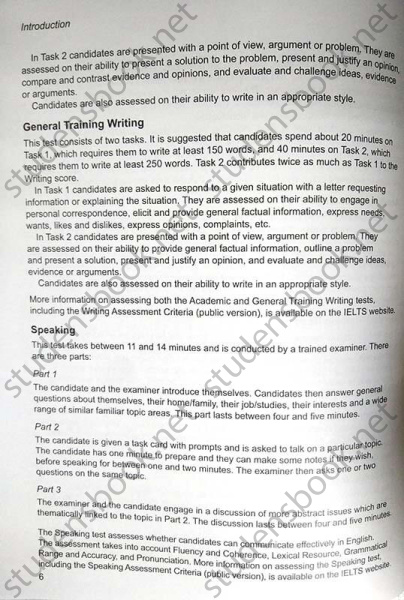 Introduction
In Task 2 candidates are presented with a point of view, argument or problem. They are
assessed on their ability to present a solution to the problem, present and justify an opinion,
compare and contrast evidence and opinions, and evaluate and challenge ideas, evidence
or arguments.
Candidates are also assessed on their ability to write in an appropriate style.
General Training Writing
This test consists of two tasks. It is suggested that candidates spend about 20 minutes on
Task 1, which requires them to write at least 150 words, and 40 minutes on Task 2, which
requires them to write at least 250 words. Task 2 contributes twice as much as Task 1 to the
Writing score.
In Task 1 candidates are asked to respond to a given situation with a letter requesting
information or explaining the situation. They are assessed on their ability to engage in
personal correspondence, elicit and provide general factual information, express needs,
wants, likes and dislikes, express opinions, complaints, etc.
In Task 2 candidates are presented with a point of view, argument or problem. They
are assessed on their ability to provide general factual information, outline a problem
and present a solution, present and justify an opinion, and evaluate and challenge ideas,
evidence or arguments.
Candidates are also assessed on their ability to write in an appropriate style.
More information on assessing both the Academic and General Training Writing tests,
including the Writing Assessment Criteria (public version), is available on the IELTS website.
Speaking
This test takes between 11 and 14 minutes and is conducted by a trained examiner. There
are three parts:
Part 1
The candidate and the examiner introduce themselves. Candidates then answer general
questions about themselves, their home/family, their job/studies, their interests and a wide
range of similar familiar topic areas. This part lasts between four and five minutes.
Part 2
The candidate is given a task card with prompts and is asked to talk on a particular topic.
The candidate has one minute to prepare and they can make some notes if they wish,
before speaking for between one and two minutes. The examiner then asks one or two
questions on the same topic.
Part 3
The examiner and the candidate engage in a discussion of more abstract issues which are
thematically linked to the topic in Part 2. The discussion lasts between four and five minutes.
The Speaking test assesses whether candidates can communicate effectively in English.
The assessment takes into account Fluency and Coherence, Lexical Resource, Grammatical
Range and Accuracy, and Pronunciation. More information on assessing the Speaking test,
including the Speaking Assessment Criteria (public version), is available on the IELTS website.
6
studensbook.net
studensbook.net
studensbook.net
studensbook.net
studensbook.net
studensbook.net